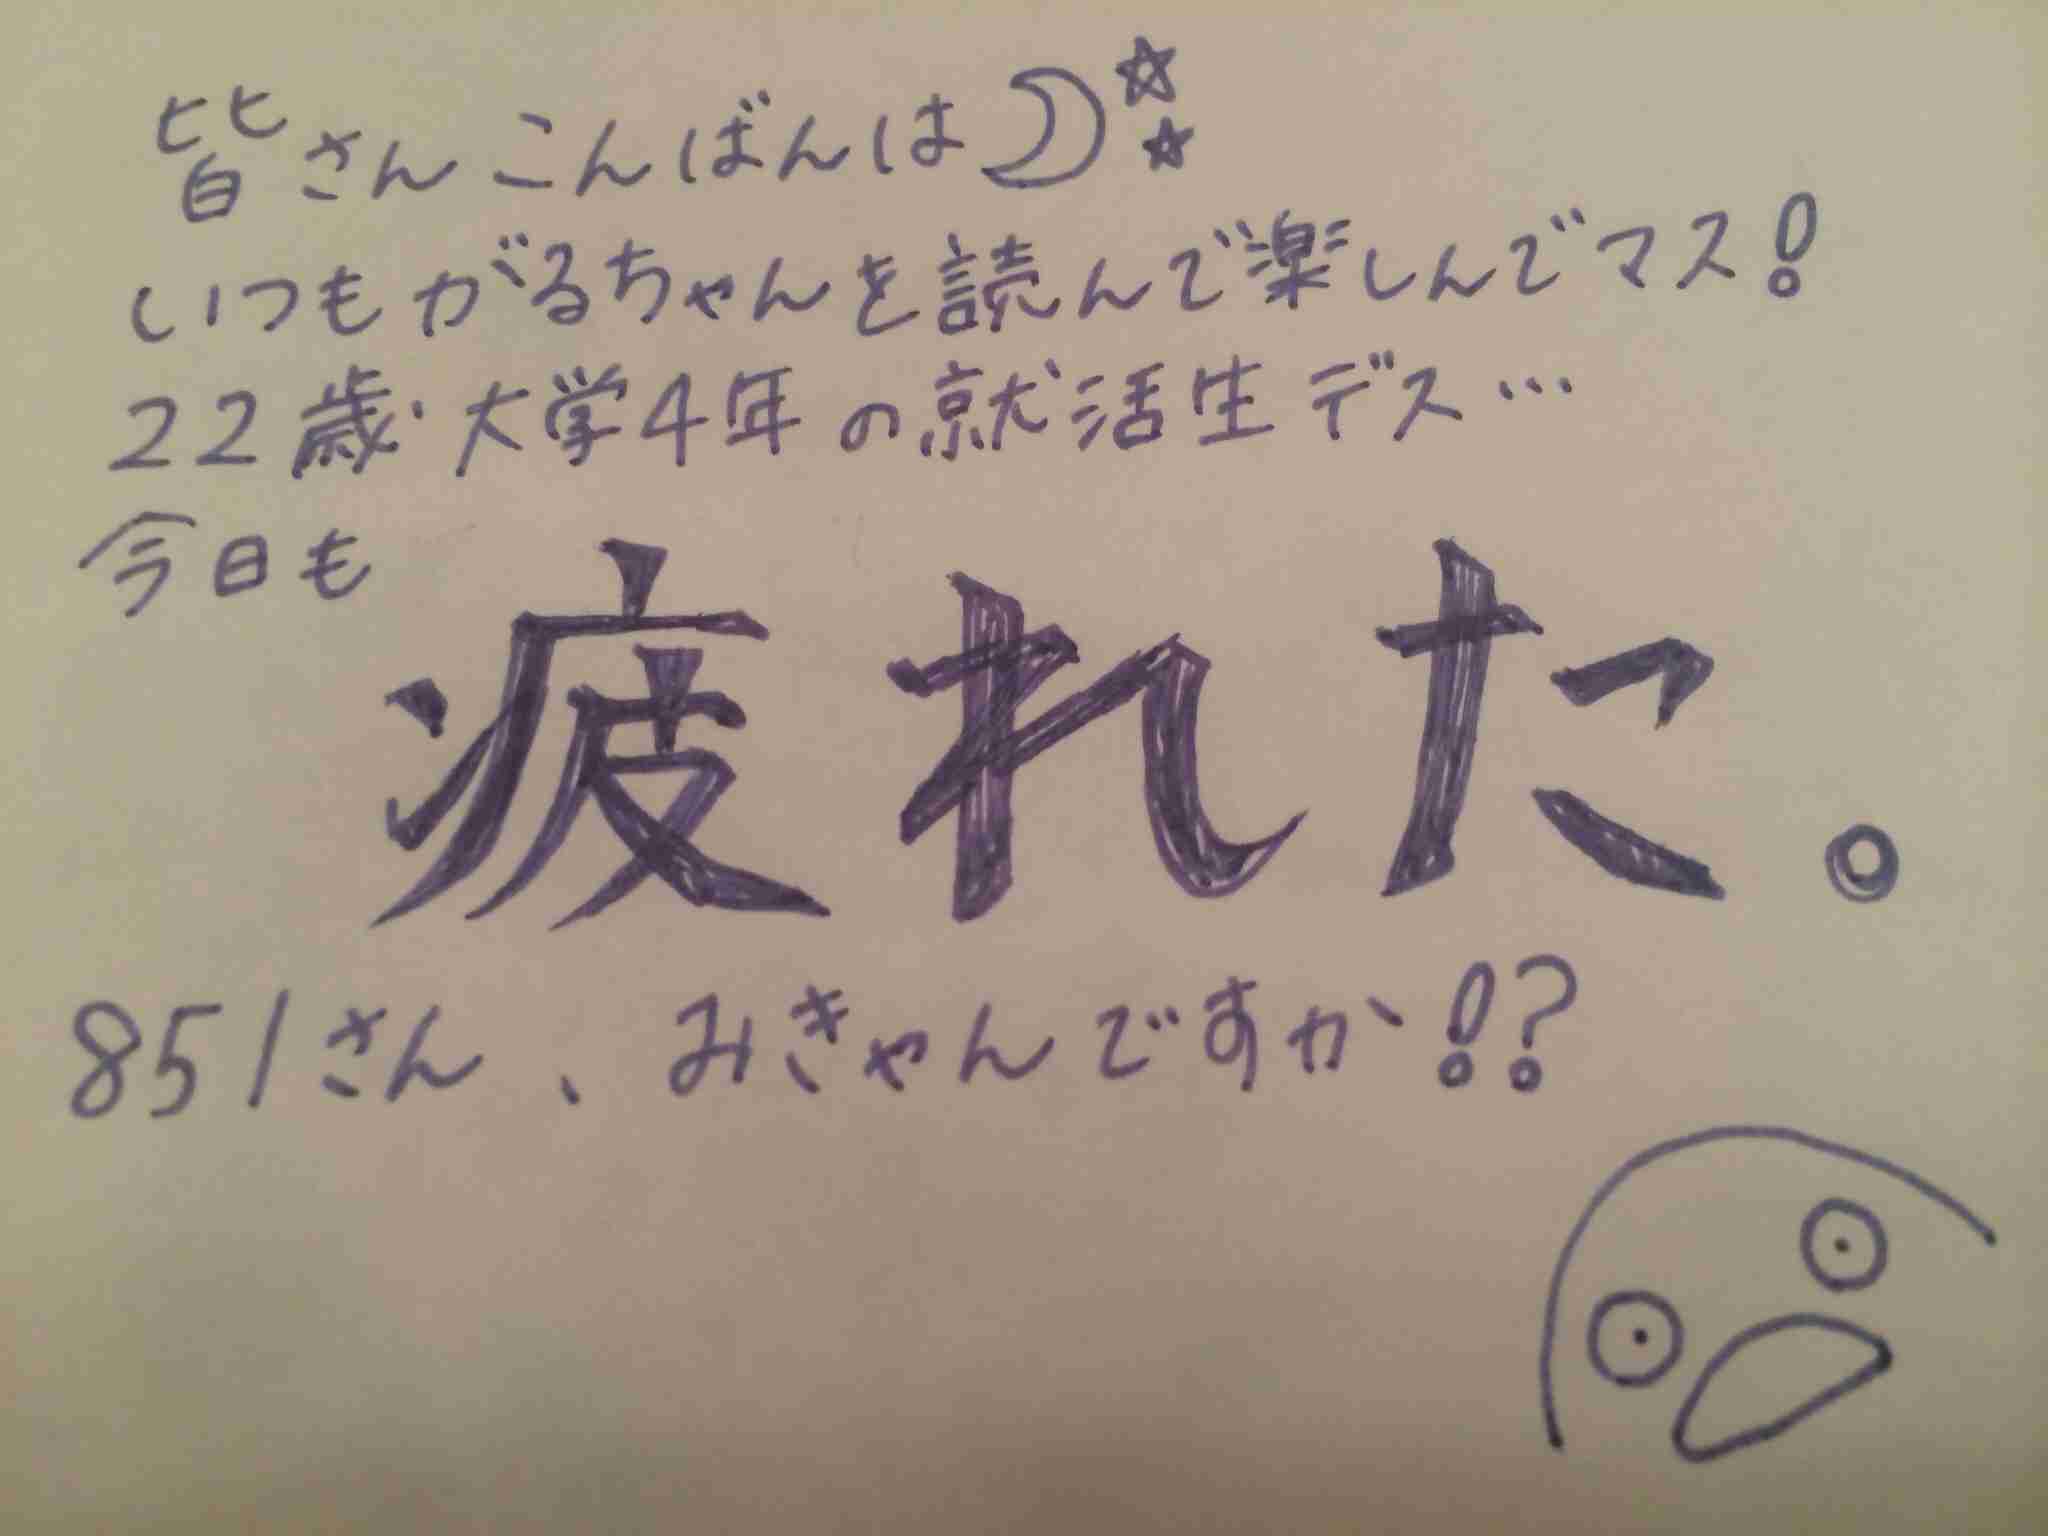 皆さんこんばんは☽☆☆
いつもがるちゃんを読んで楽しんでマス!
22歳・大学4年の就活生デス…
今日も
疲れた。
851さん、みきゃんですか!?